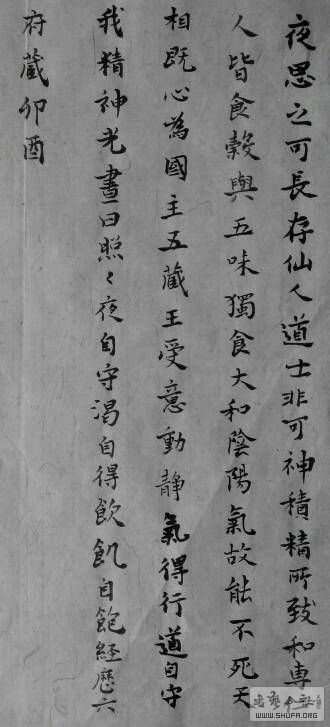 夜思之可長存仙人道士非可神積精所致和專
人皆食穀與五味獨食大和陰陽氣故能不死天
相既心為國主五藏王受意動静氣得行道自守
我精神光晝日照〻夜自守渴自得飲飢自飽經歷六
府藏卯酉
WWW.SHUFA.ORG